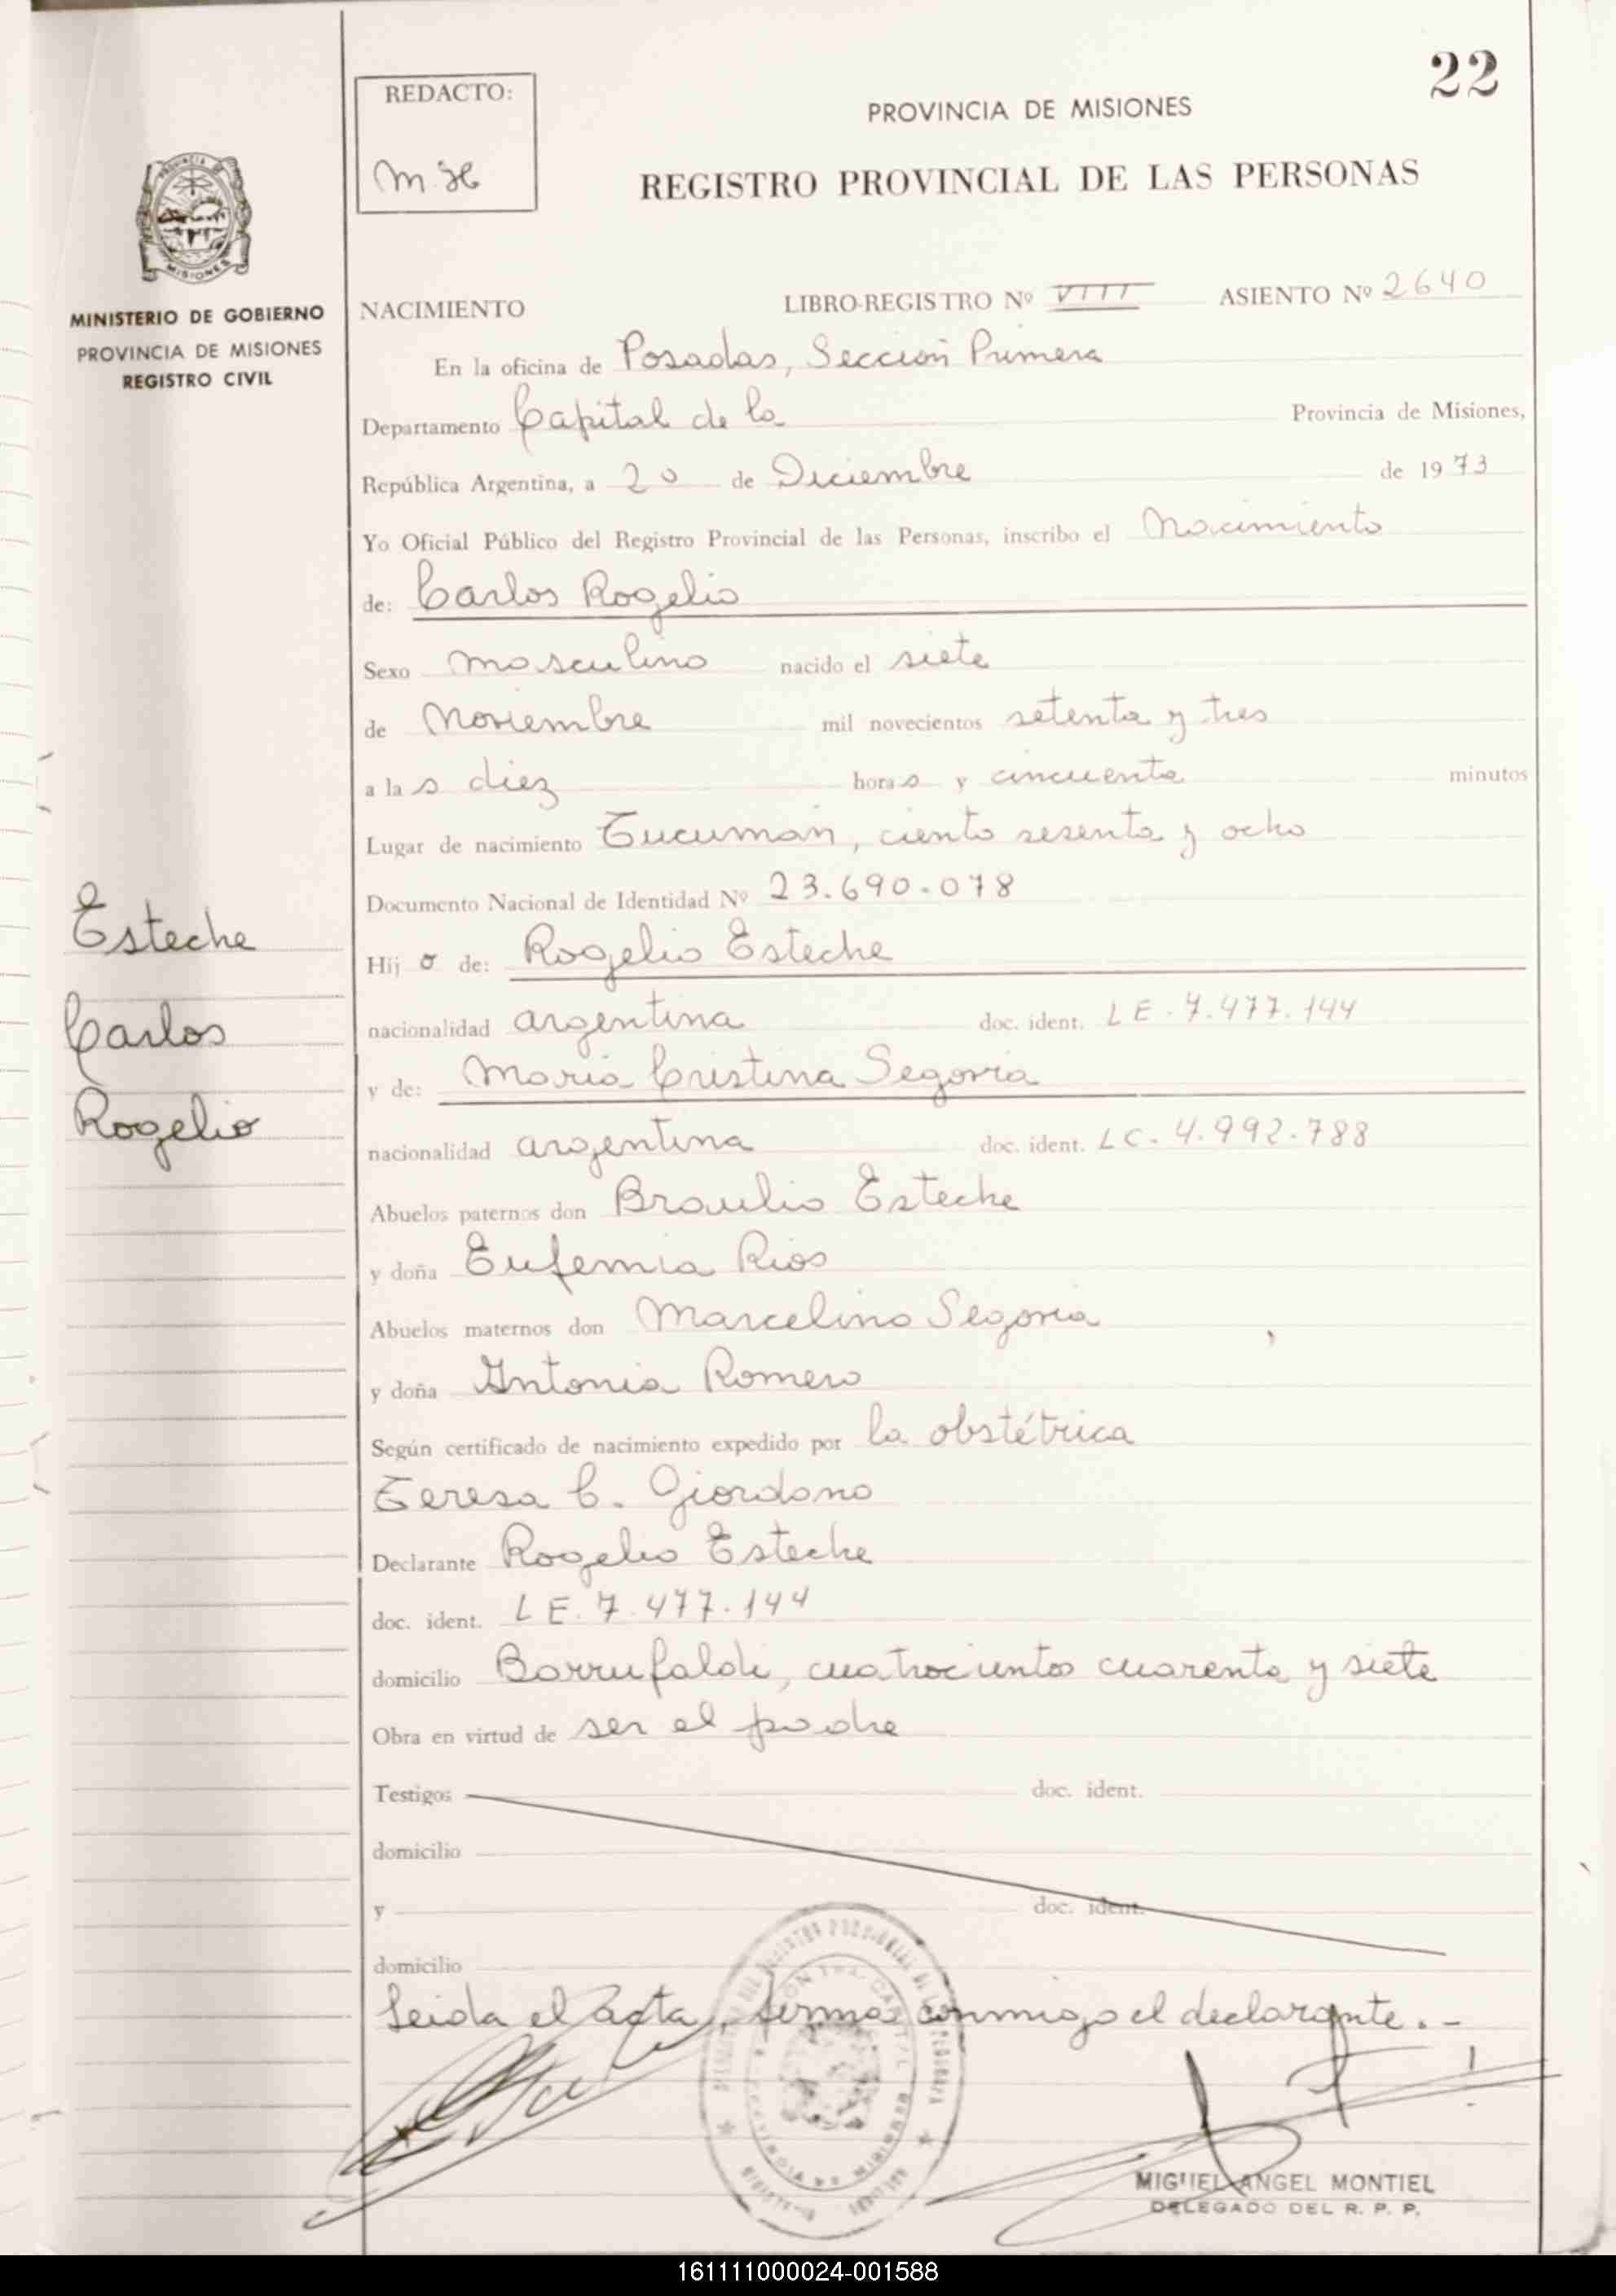 22
REDACTO:
PROVINCIA DE MISIONES
REGISTRO PROVINCIAL DE LAS PERSONAS
PROVINCIA DE
MISIONES
MINISTERIO DE GOBIERNO
PROVINCIA DE MISIONES
REGISTRO CIVIL
NACIMIENTO LIBRO-REGISTRO Nº VIII ASIENTO Nº 2640
En la oficina de Posadas, Sección Primera
Departamento Capital de la Provincia de Misiones,
República Argentina, a 20 de Diciembre de 1973
Yo Oficial Público del Registro Provincial de las Personas, inscribo el Nacimiento
de: Carlos Rogelio
Sexo masculino nacido el siete
de Noviembre mil novecientos setenta y tres
a las diez horas y cincuenta minutos
Lugar de nacimiento Tucumán, ciento sesenta y ocho
Documento Nacional de Identidad Nº 23.690.078
Hijo de: Rogelio Esteche
nacionalidad argentina doc. ident. LE. 7.477.144
y de: María Cristina Segovia
nacionalidad argentina doc. ident. LC. 4.992.788
Abuelos paternos don Braulio Esteche
y doña Eufemia Rios
Abuelos maternos don Marcelino Segovia
y doña Antonia Romero
Según certificado de nacimiento expedido por la obstétrica
Teresa C. Giordano
Declarante Rogelio Esteche
doc. ident. LE. 7.477.144
domicilio Barrufaldi, cuatrocientos cuarenta y siete
Obra en virtud de ser el padre
Testigos doc. ident.
domicilio
y doc. ident.
domicilio
Leida el acta, firma conmigo el declarante.-
Esteche
Carlos
Rogelio
MIGUEL ANGEL MONTIEL
DELEGADO DEL R. P. P.
161111000024-001588